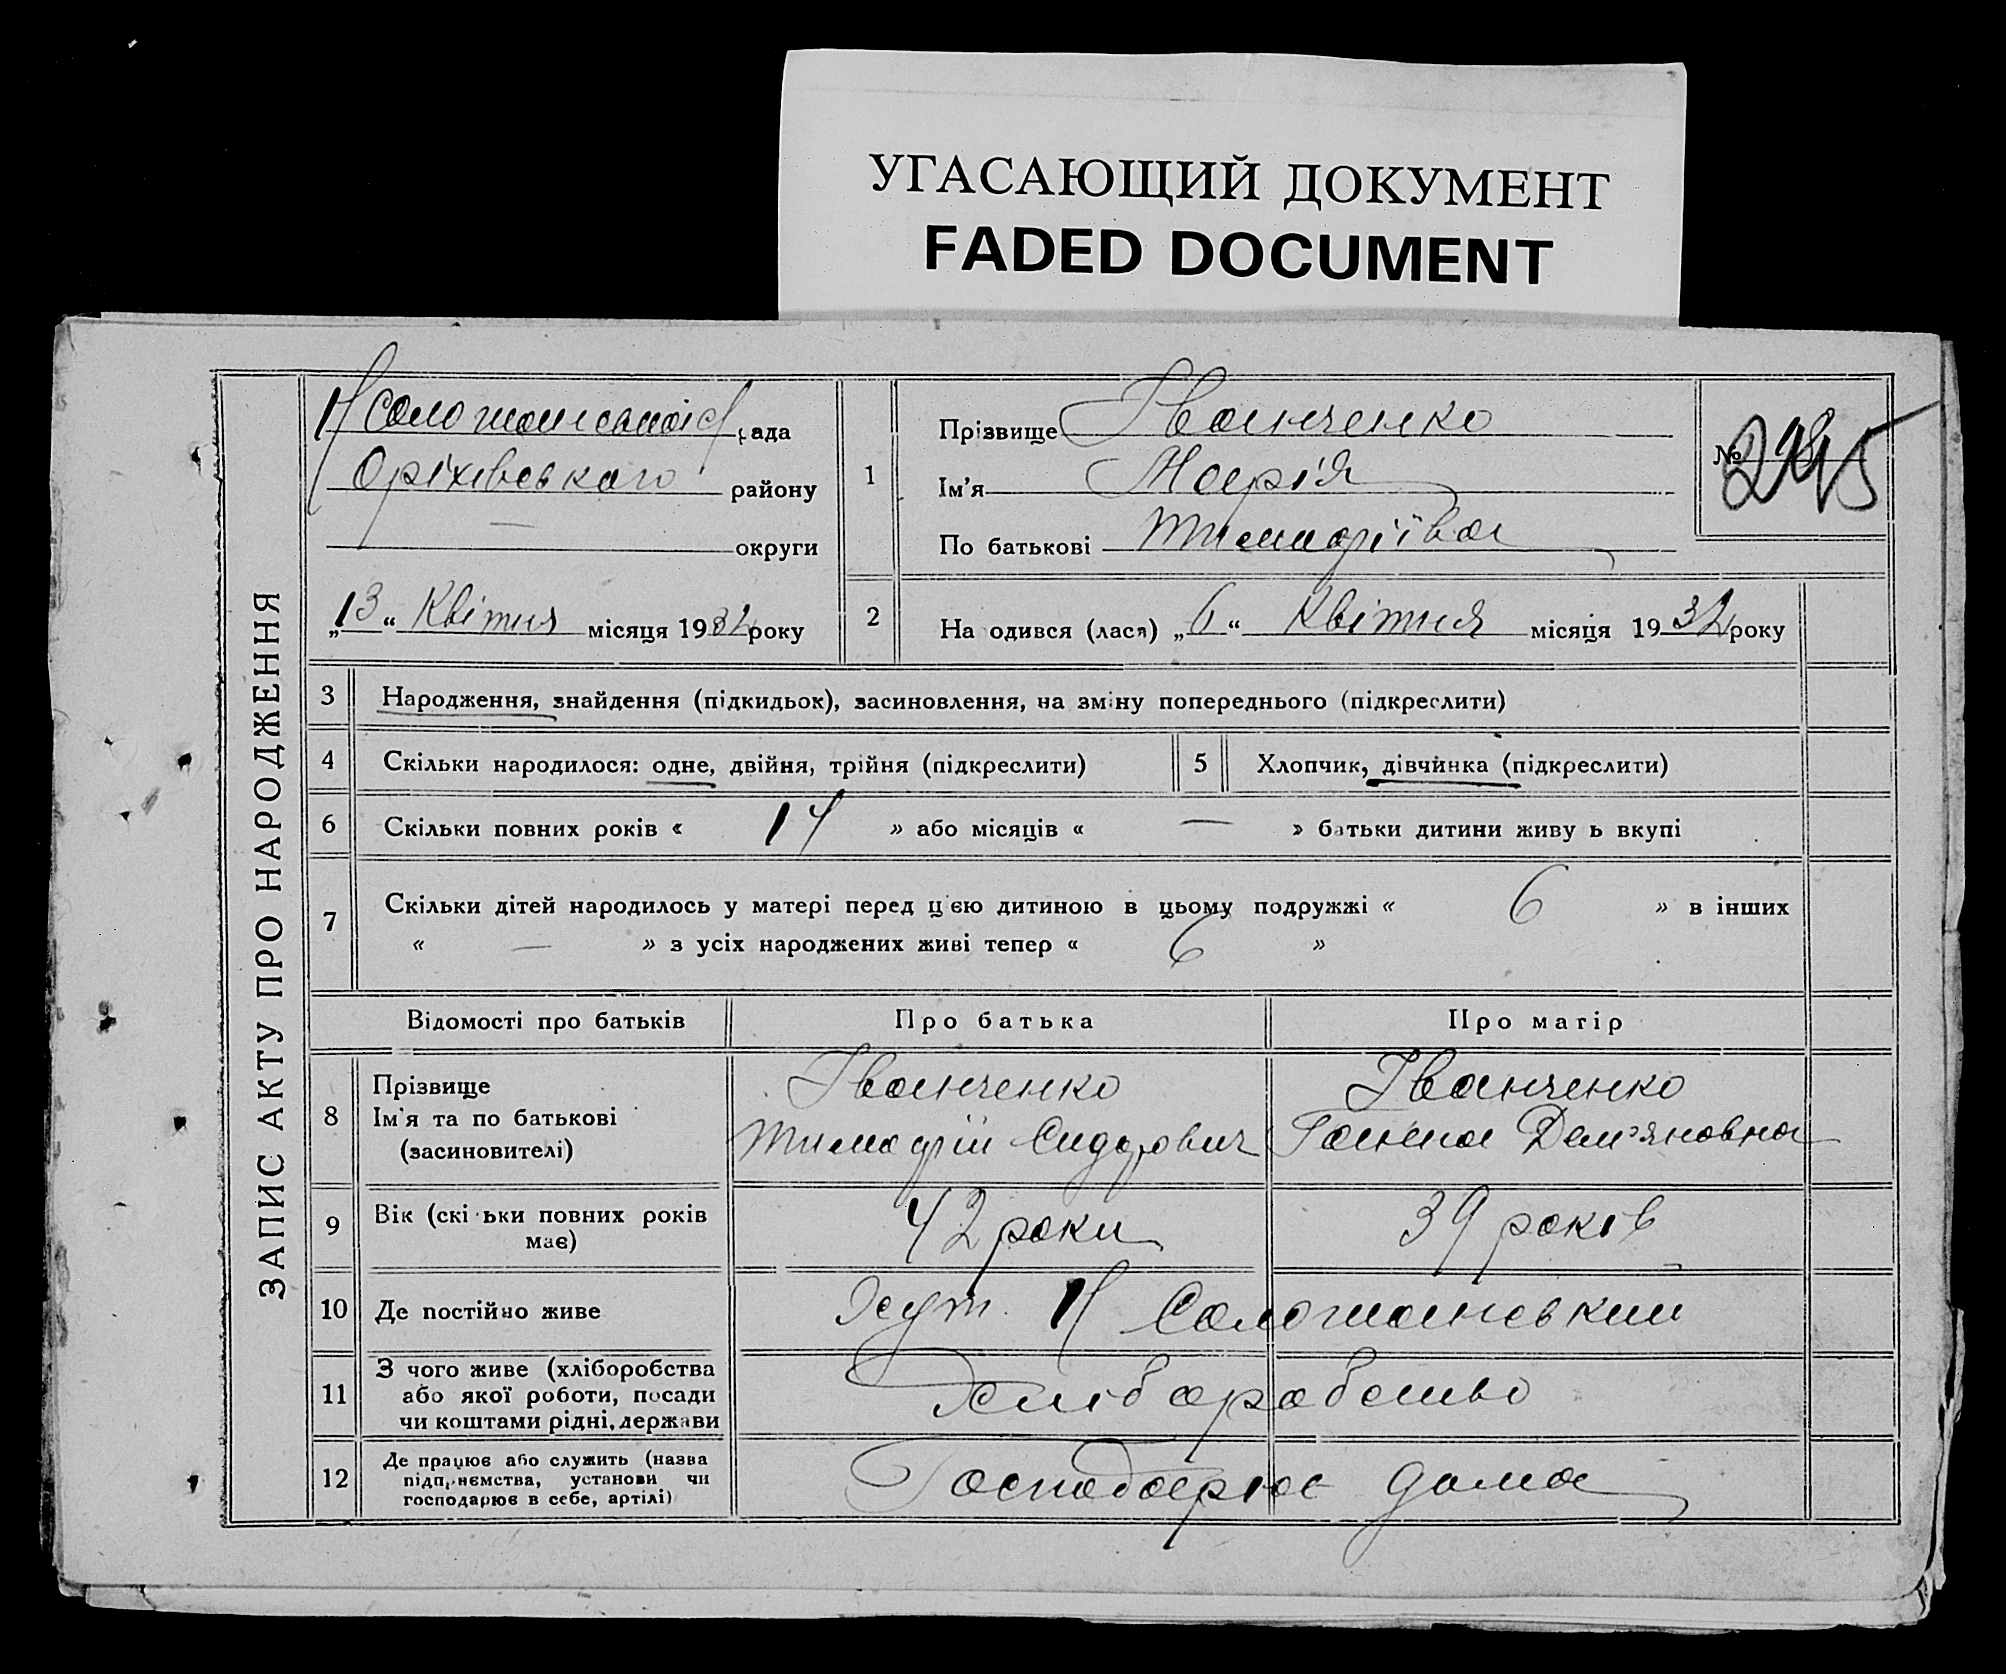 УГАСАЮЩИЙ ДОКУМЕНТ
FADED DOCUMENT
ЗАПИС АКТУ ПРО НАРОДЖЕННЯ
рада
Оріхівського району
— округи
„13“ Квітня місяця 1932 року
1
Прізвище Іванченко
Ім'я Марія
По батькові Тимофіївна
№
2 На одився (лася) „6“ Квітня місяця 1932 року
3 Народження, знайдення (підкидьок), засиновлення, на зміну попереднього (підкреслити)
4 Скільки народилося: одне, двійня, трійня (підкреслити)
5 Хлопчик, дівчинка (підкреслити)
6 Скільки повних років « 14 » або місяців « — » батьки дитини живу ь вкупі
7 Скільки дітей народилось у матері перед цією дитиною в цьому подружжі « 6 » в інших
« — » з усіх народжених живі тепер « 6 »
Відомості про батьків
Про батька
Про матір
8 Прізвище
Ім'я та по батькові
(засиновителі)
Іванченко
Тимофій Сидорович
Іванченко
Ганна Дем'яновна
9 Вік (скі ьки повних років
має)
42 роки
39 років
10 Де постійно живе
Хут. Н Соломановский
11 З чого живе (хліборобства
або якої роботи, посади
чи коштами рідні, держави
Хліборобство
12 Де працює або служить (назва
підприємства, установи чи
господарює в себе, артілі)
Господарює дома